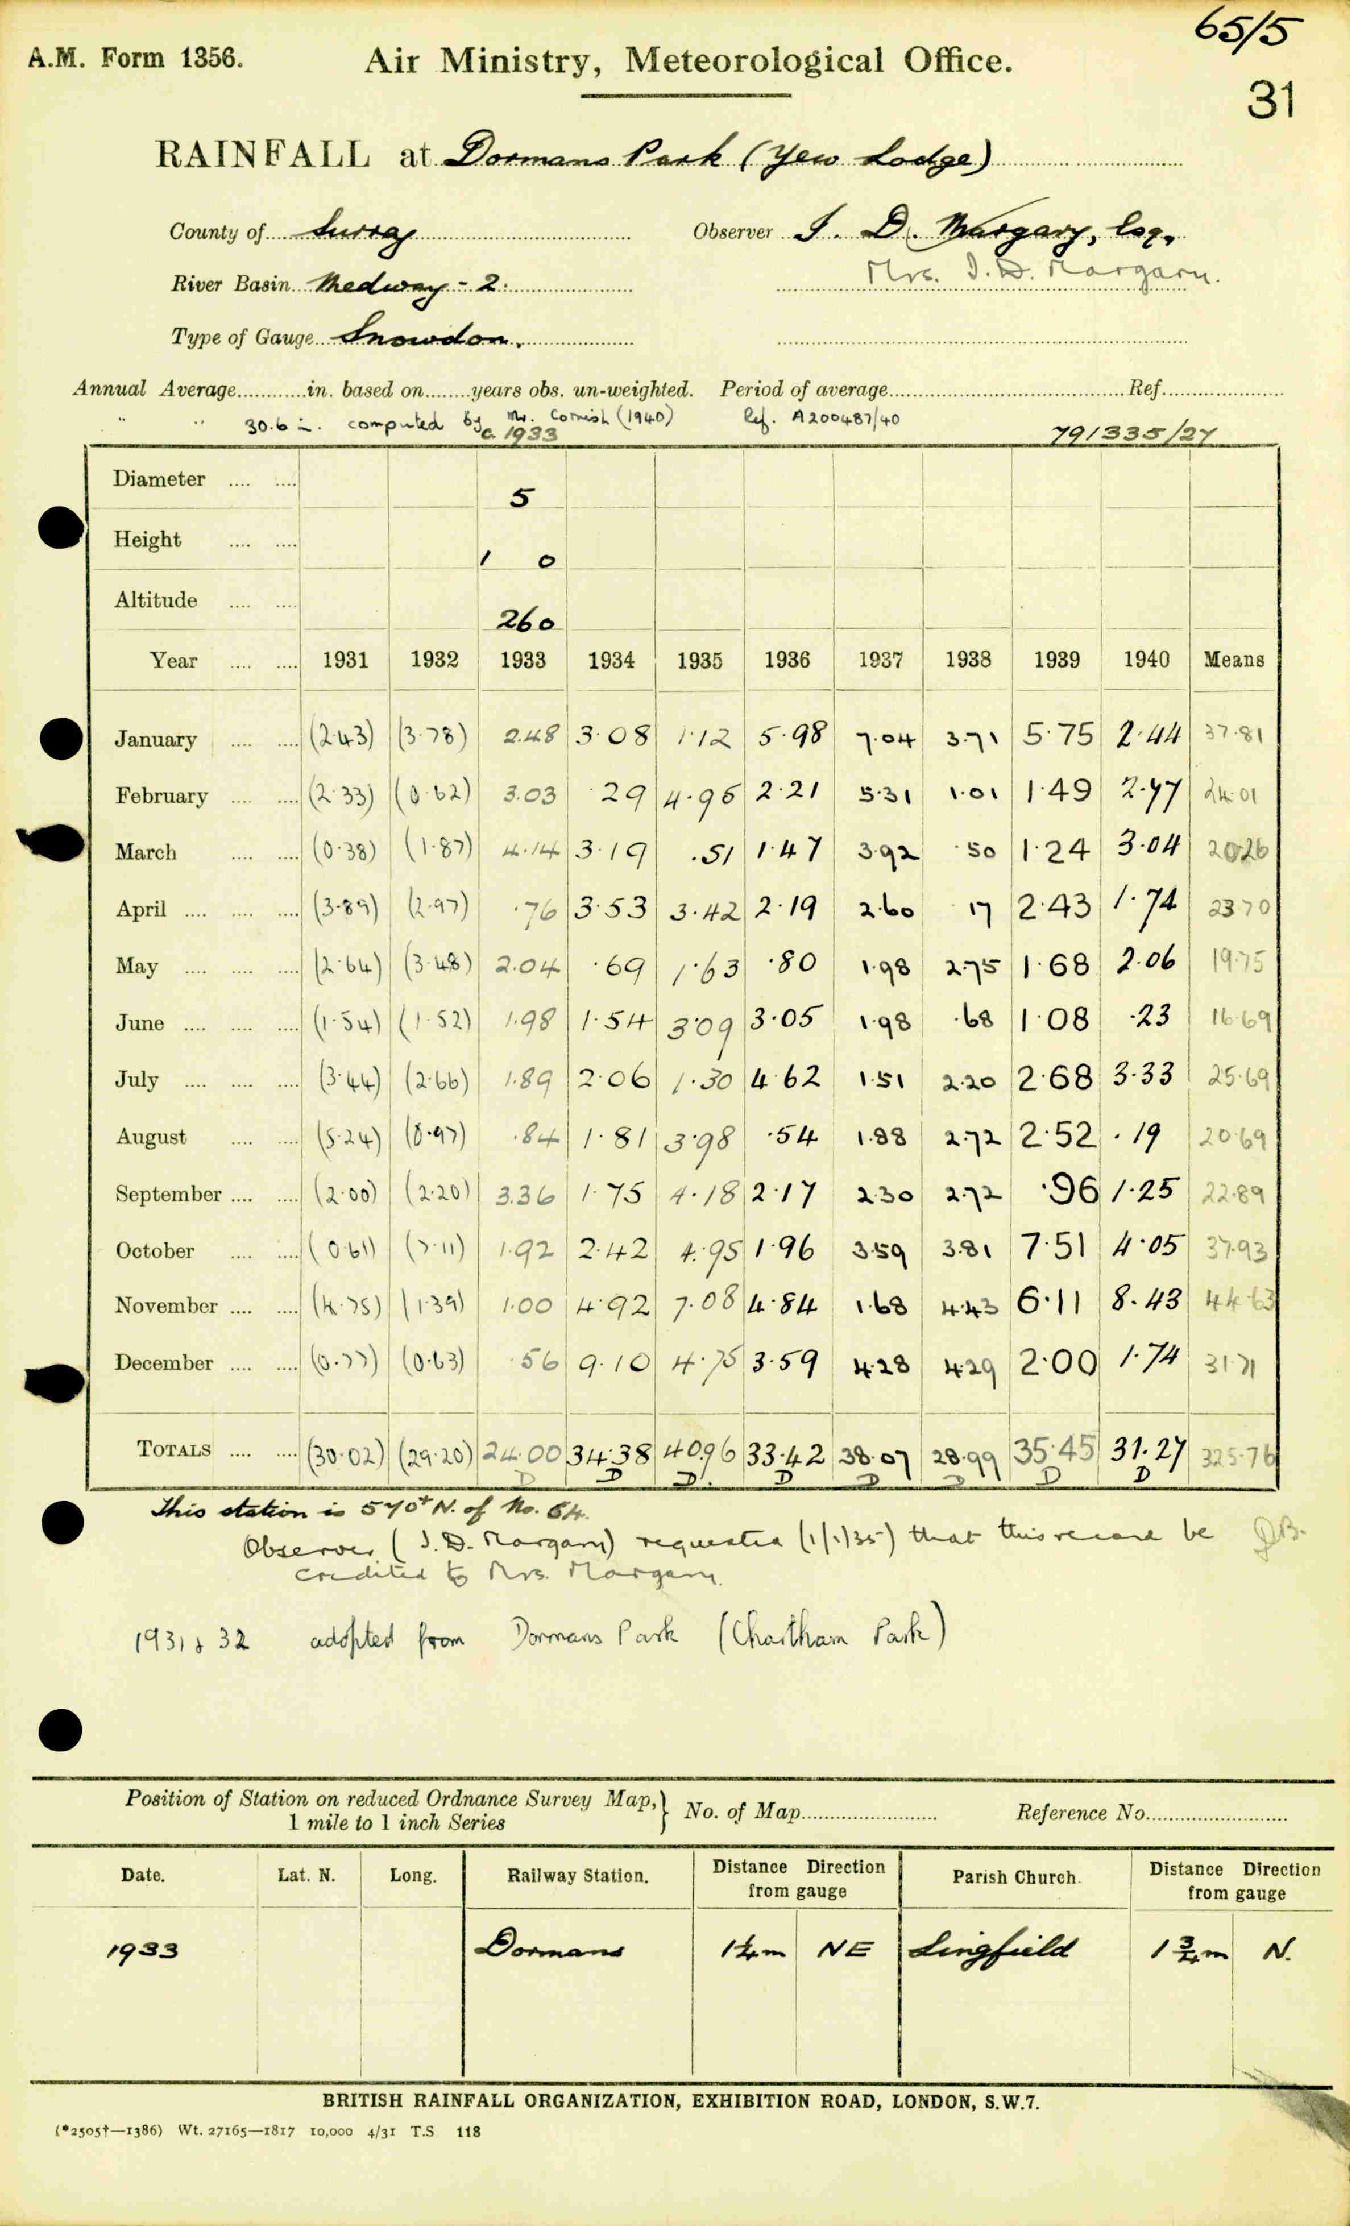 65/5
A.M. Form 1356. Air Ministry, Meteorological Office.
31
RAINFALL at Dormans Park (Yew Lodge)
County of Surrey Observer I. D. Margary, Esq.
Mrs. I. D. Margary.
River Basin Medway - 2.
Type of Gauge Snowdon.
Annual Average in. based on years obs. un-weighted. Period of average Ref.
" " 30.6 in. computed by Mr. Cornish (1940) Ref. A200487/40
c. 1933 791335/27
Diameter 5
Height 1 0
Altitude 260
Year 1931 1932 1933 1934 1935 1936 1937 1938 1939 1940 Means
January (2.43) (3.78) 2.48 3.08 1.12 5.98 7.04 3.71 5.75 2.44 37.81
February (2.33) (0.62) 3.03 .29 4.95 2.21 5.31 1.01 1.49 2.77 24.01
March (0.38) (1.87) 4.14 3.19 .51 1.47 3.92 .50 1.24 3.04 20.26
April (3.89) (2.97) .76 3.53 3.42 2.19 2.60 .17 2.43 1.74 23.70
May (2.64) (3.48) 2.04 .69 1.63 .80 1.98 2.75 1.68 2.06 19.75
June (1.54) (1.52) 1.98 1.54 3.09 3.05 1.98 .68 1.08 .23 16.69
July (3.44) (2.66) 1.89 2.06 1.30 4.62 1.51 2.20 2.68 3.33 25.69
August (5.24) (0.97) .84 1.81 3.98 .54 1.88 2.72 2.52 .19 20.69
September (2.00) (2.20) 3.36 1.75 4.18 2.17 2.30 2.72 .96 1.25 22.89
October (0.61) (7.11) 1.92 2.42 4.95 1.96 3.59 3.81 7.51 4.05 37.93
November (4.75) (1.39) 1.00 4.92 7.08 4.84 1.68 4.43 6.11 8.43 44.63
December (0.77) (0.63) .56 9.10 4.75 3.59 4.28 4.29 2.00 1.74 31.71
TOTALS (30.02) (29.20) 24.00 34.38 40.96 33.42 38.07 28.99 35.45 31.27 325.76
D D D. D D D D D
This station is 570+ N. of No. 64.
Observer (I. D. Margary) requested (1/1/35) that this record be
credited to Mrs. Margary.
1931 & 32 adopted from Dormans Park (Chartham Park)
Position of Station on reduced Ordnance Survey Map,
1 mile to 1 inch Series } No. of Map Reference No.
Date. Lat. N. Long. Railway Station. Distance Direction from gauge Parish Church. Distance Direction from gauge
1933 Dormans 1¼m NE Lingfield 1¾m N.
BRITISH RAINFALL ORGANIZATION, EXHIBITION ROAD, LONDON, S.W.7.
(*2505†—1386) Wt. 27165—1817 10,000 4/31 T.S 118